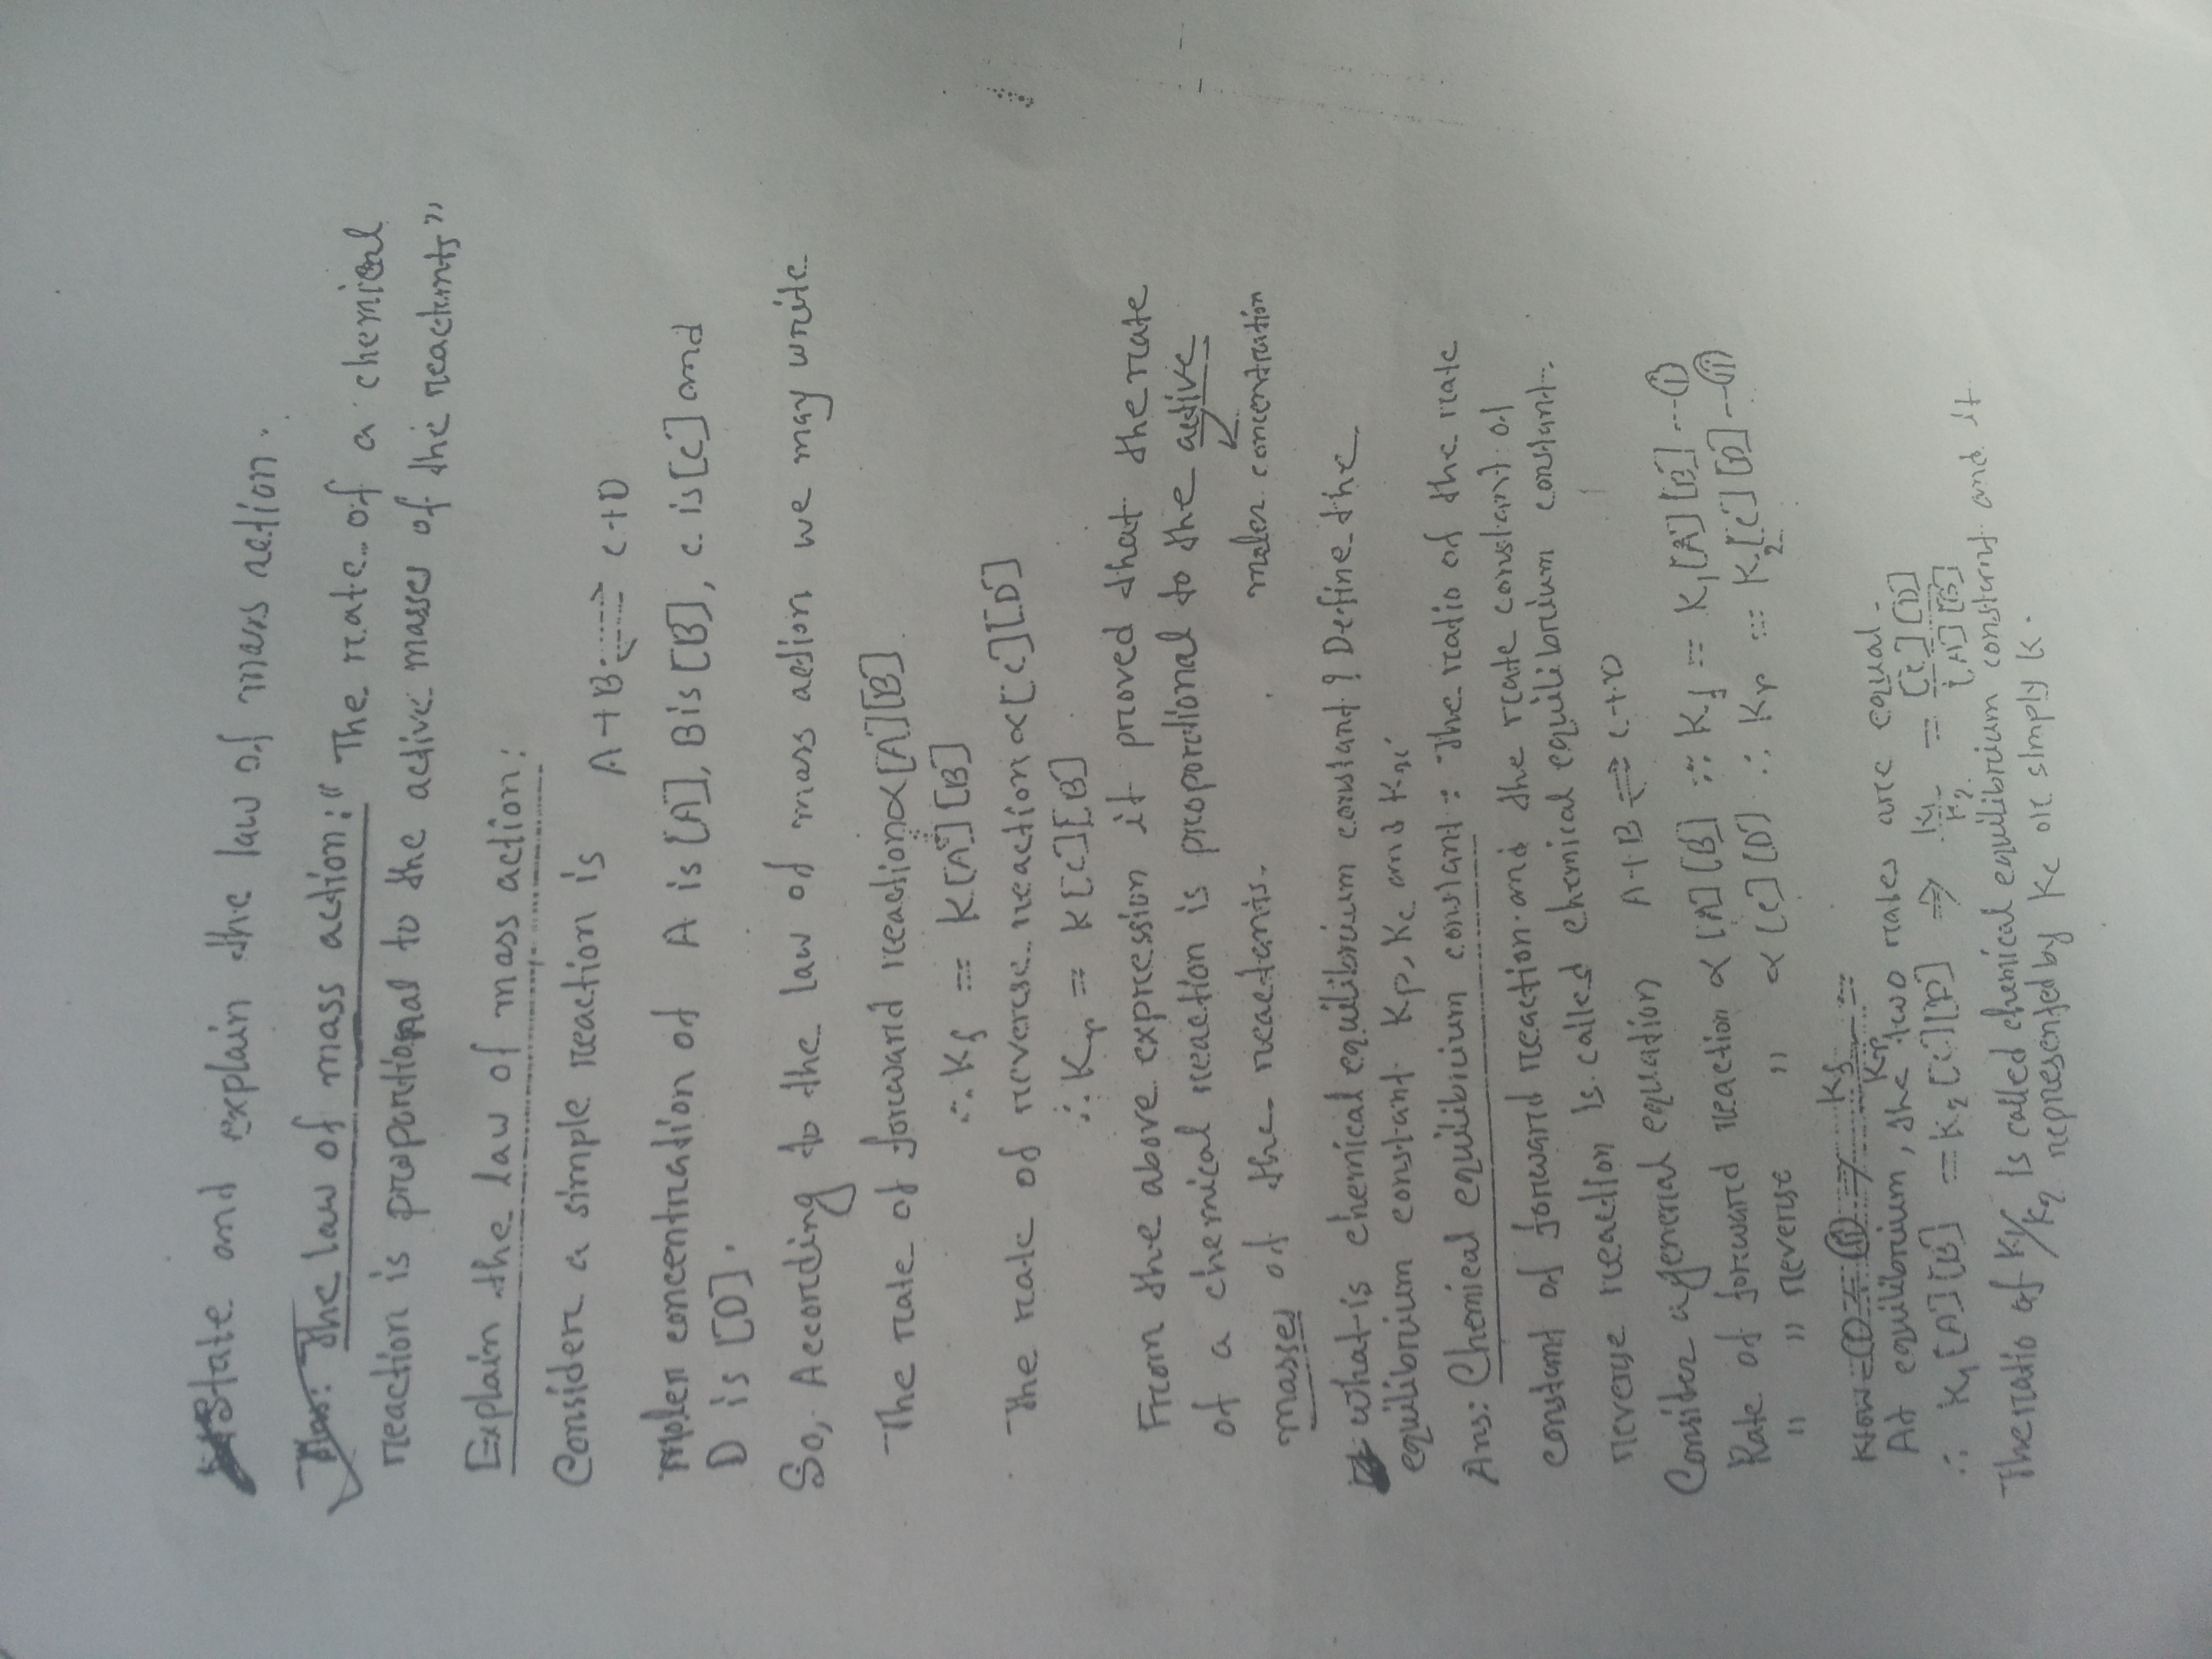 State and explain the law of mass action.
Ans: The law of mass action: " The rate of a chemical
reaction is proportional to the active masses of the reactants"
Explain the law of mass action:
Consider a simple reaction is A+B ⇌ C+D
Moler concentration of A is [A], B is [B], C is [C] and
D is [D].
So, According to the law of mass action we may write
The rate of forward reaction ∝ [A][B]
∴ Kf = K[A][B]
The rate of reverse reaction ∝ [C][D]
∴ Kr = K[C][B]
From the above expression it proved that the rate
of a chemical reaction is proportional to the active
masses of the reactants.
moler concentration
What is chemical equilibrium constant? Define the
equilibrium constant Kp, Kc and Kx.
Ans: Chemical equilibrium constant: The ratio of the rate
constant of forward reaction and the rate constant of
reverse reaction is called chemical equilibrium constant.
Consider a general equation A+B ⇌ C+D
Rate of forward reaction ∝ [A][B] ∴ Kf = K1[A][B] --- (i)
" " reverse " ∝ [C][D] ∴ Kr = K2[C][D] --- (ii)
Now (i) ÷ (ii) ⇒ Kf/Kr =
At equilibrium, the two rates are equal.
∴ K1[A][B] = K2[C][D] ⇒ K1/K2 = [C][D]/[A][B]
The ratio of K1/K2 is called chemical equilibrium constant and it
represented by Kc or simply K.